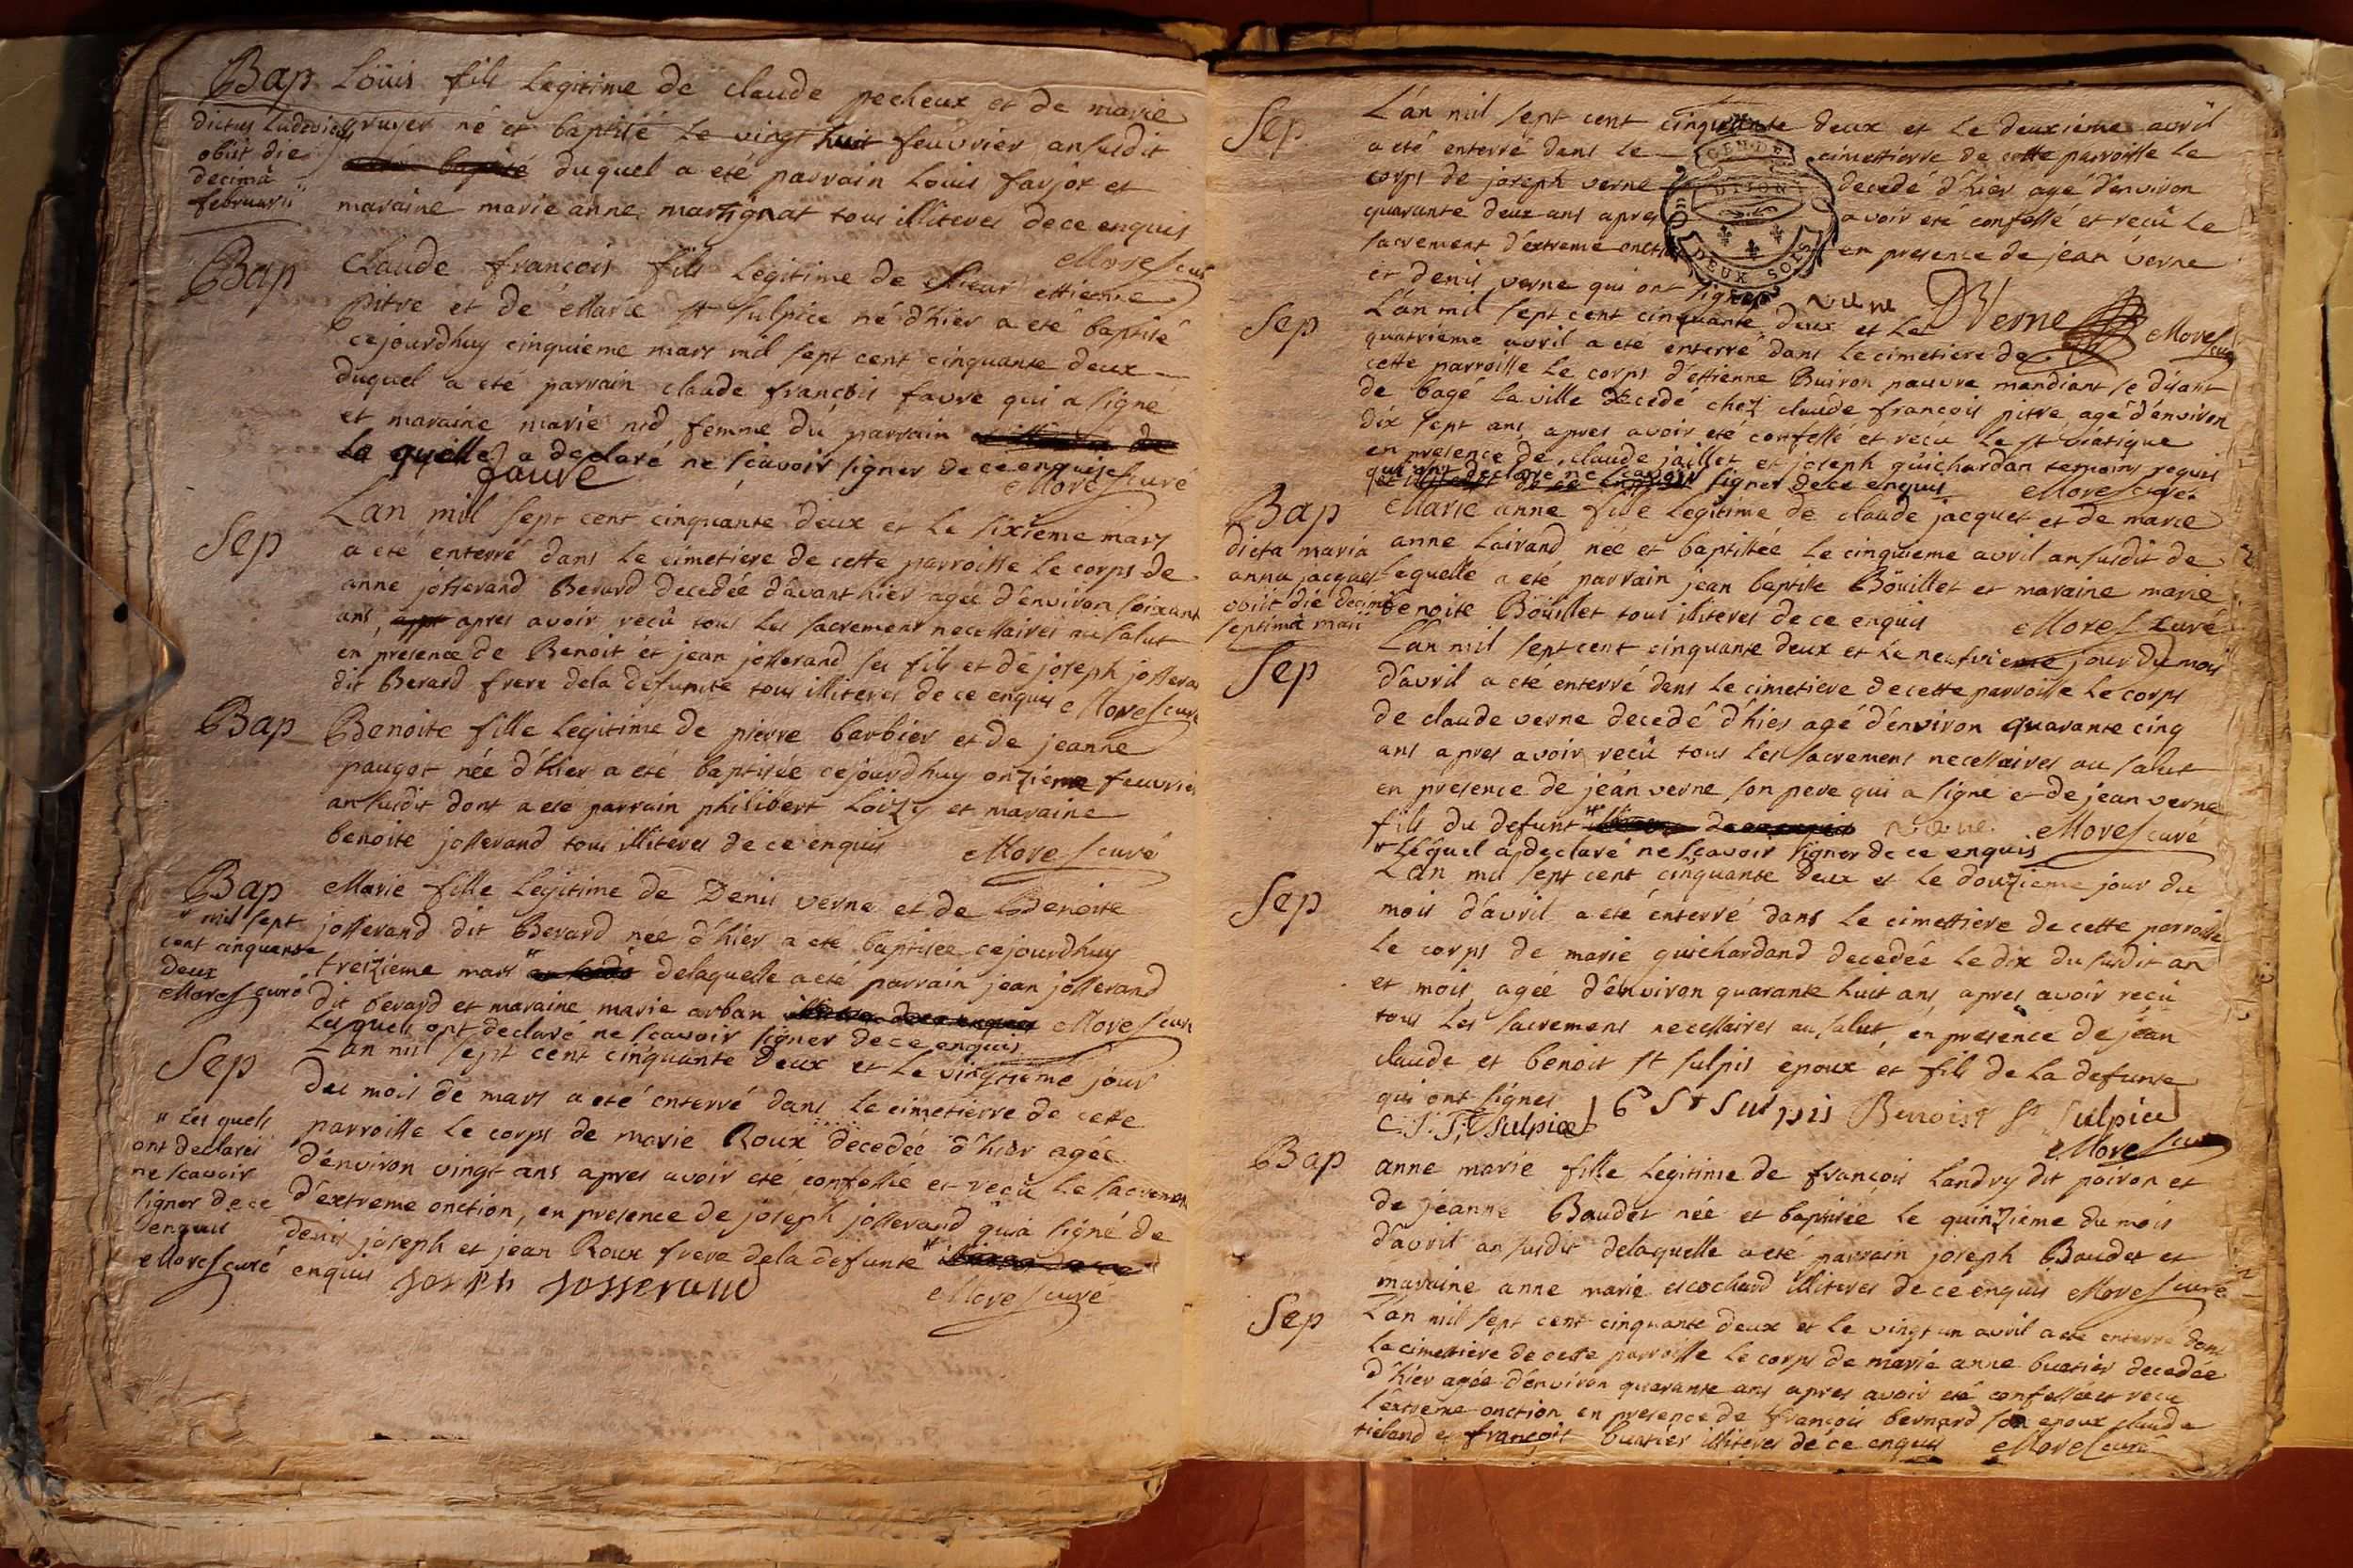 Bap Loüis fils legitime de claude pecheux et de marie
gruyer né et baptisé le vingt huit feuvrier ansusdit
duquel a eté parrain Louis farjot et
maraine marie anne martignat tous illiteres de ce enquis
Mores curé
dictus Ludovicus
obiit die
decima
februarii
Bap Claude françois fils legitime de sieur ettienne
pitre et de Marie st sulpice né d'hier a eté baptisé
cejourdhuy cinquieme mars mil sept cent cinquante deux
duquel a eté parrain claude françois favre qui a signé
et maraine marie nid femme du parrain
la quelle a declaré ne sçavoir signer de ce enquise
favre Mores curé
Sep Lan mil sept cent cinquante deux et le sixieme mars
a eté enterré dans le cimetiere de cette parroisse le corps de
anne josserand Berard decedée davanthier agée d'environ soixante
ans, apres avoir reçû tous les sacremens necessaires au salut
en presence de Benoit et jean josserand ses fils et de joseph josserand
dit Berard frere dela defunte tous illiteres de ce enquis Mores curé
Bap Benoite fille legitime de pierre barbier et de jeanne
paugot née d'hier a eté baptisée cejourdhuy onzieme feuvrier
ansusdit dont a eté parrain philibert Loizy et maraine
benoite josserand tous illiteres de ce enquis Mores curé
Bap Marie fille legitime de Denis verne et de Benoite
josserand dit Berard nee d'hier a eté baptisee cejourdhuy
treizieme mars " delaquelle a eté parrain jean josserand
dit berard et maraine marie arban Mores curé
Lesquels ont declaré ne scavoir signer de ce enquis
" mil sept
cent cinquante
deux
Mores curé
Sep Lan mil sept cent cinquante deux et le vingtieme jour
du mois de mars a eté enterré dans le cimetierre de cette
parroisse le corps de marie Roux decedée d'hier agée
d'environ vingt ans apres avoir eté confessée et reçû le sacrement
d'extreme onction, en presence de joseph josserand qui a signé de
denis joseph et jean Roux frere dela defunte "
enquis Joseph Josserand Mores curé
" Les quels
ont declarés
ne scavoir
signer de ce
enquis
Mores curé
Sep L'an mil sept cent cinquante deux et le deuxieme avril
a eté enterré dans le cimettierre de cette parroisse le
corps de joseph verne decedé d'hier agé d'environ
quarante deux ans apres avoir eté confessé et reçû le
sacrement d'extreme onction en presence de jean verne
et denis verne qui ont signes
GEN DE
DIJON
DEUX SOLS
verne DVerne Mores curé
Sep L'an mil sept cent cinquante deux et le
quatrieme avril a eté enterré dans le cimetiere de
cette parroisse le corps d'ettienne Buiron pauvre mandiant se disant
de bagé la ville decedé chez claude françois pitre agé d'environ
dix sept ans apres avoir eté confessé et reçû le st viatique
en presence de claude jaillet et joseph guichardan temoins requis
qui ont declare ne scavoir signer de ce enquis Mores curé
Bap Marie anne fille legitime de claude jacquet et de marie
anne Lairand née et baptistée le cinquieme avril ansusdit de
lequelle a eté parrain jean baptiste Böuillet et maraine marie
benoite Böuillet tous illiteres de ce enquis Mores curé
dicta maria
anna jacquet
obiit die decima
septima maii
Sep L'an mil sept cent cinquante deux et le neufvieme jour du mois
d'avril a eté enterré dans le cimetiere de cette parroisse le corps
de claude verne decedé d'hier agé d'environ quarante cinq
ans apres avoir reçû tous les sacremens necessaires au salut
en presence de jean verne son pere qui a signe et de jean verne
fils du defunt " verne Mores curé
" Lequel a declaré ne scavoir signer de ce enquis
Sep L'an mil sept cent cinquante deux et le douzieme jour du
mois d'avril a eté enterré dans le cimettiere de cette parroisse
le corps de marie guichardand decedée le dix du susdit an
et mois, agée d'environ quarante huit ans, apres avoir reçû
tous les sacremens necessaires au salut, en presence de jean
claude et benoit st sulpis epoux et fils de la defunte
qui ont signes
St Sulpis Benoist St Sulpice
Sulpice Mores curé
Bap anne marie fille legitime de françois Landry dit poiron et
de jeanne Baudet née et baptisée le quinzieme du mois
d'avril ansusdit delaquelle a eté parrain joseph Baudet et
maraine anne marie escochard illiteres de ce enquis Mores curé
Sep L'an mil sept cent cinquante deux et le vingt un avril a eté enterré dans
le cimettiere de cette parroisse le corps de marie anne buatier decedée
d'hier agée d'environ quarante ans apres avoir eté confessée et reçu
l'extreme onction en presence de françois bernard son epoux claude
et françois buatier illiteres de ce enquis Mores curé